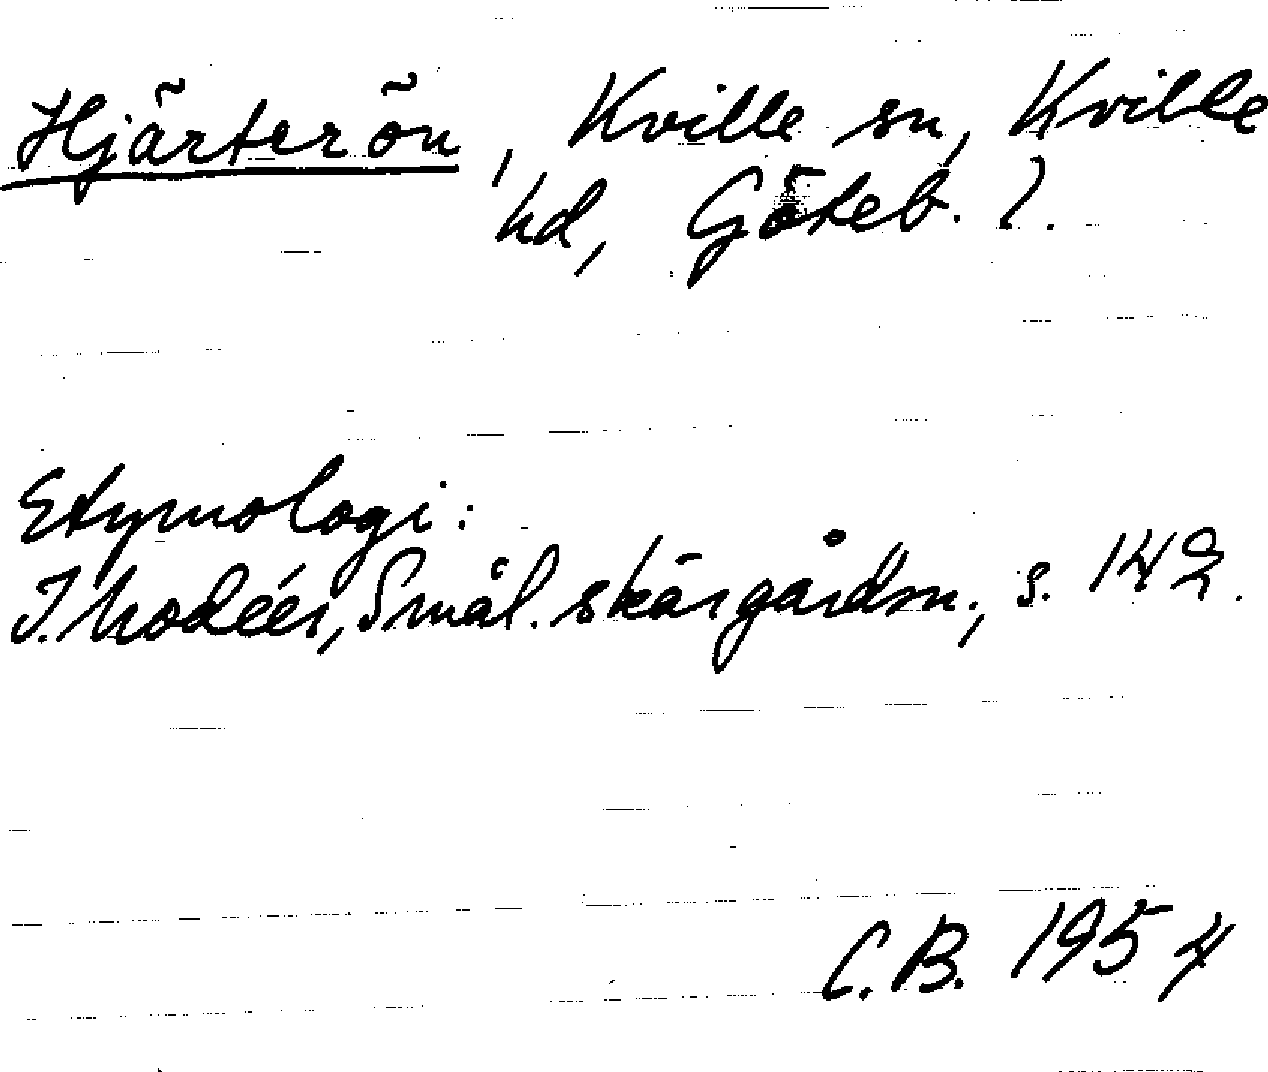 Hjärterön, Kville sn, Kville
hd, Göteb. l.
Etymologi:
I. Modéer, Smål. skärgårdsn., s. 142.
C.B. 1954